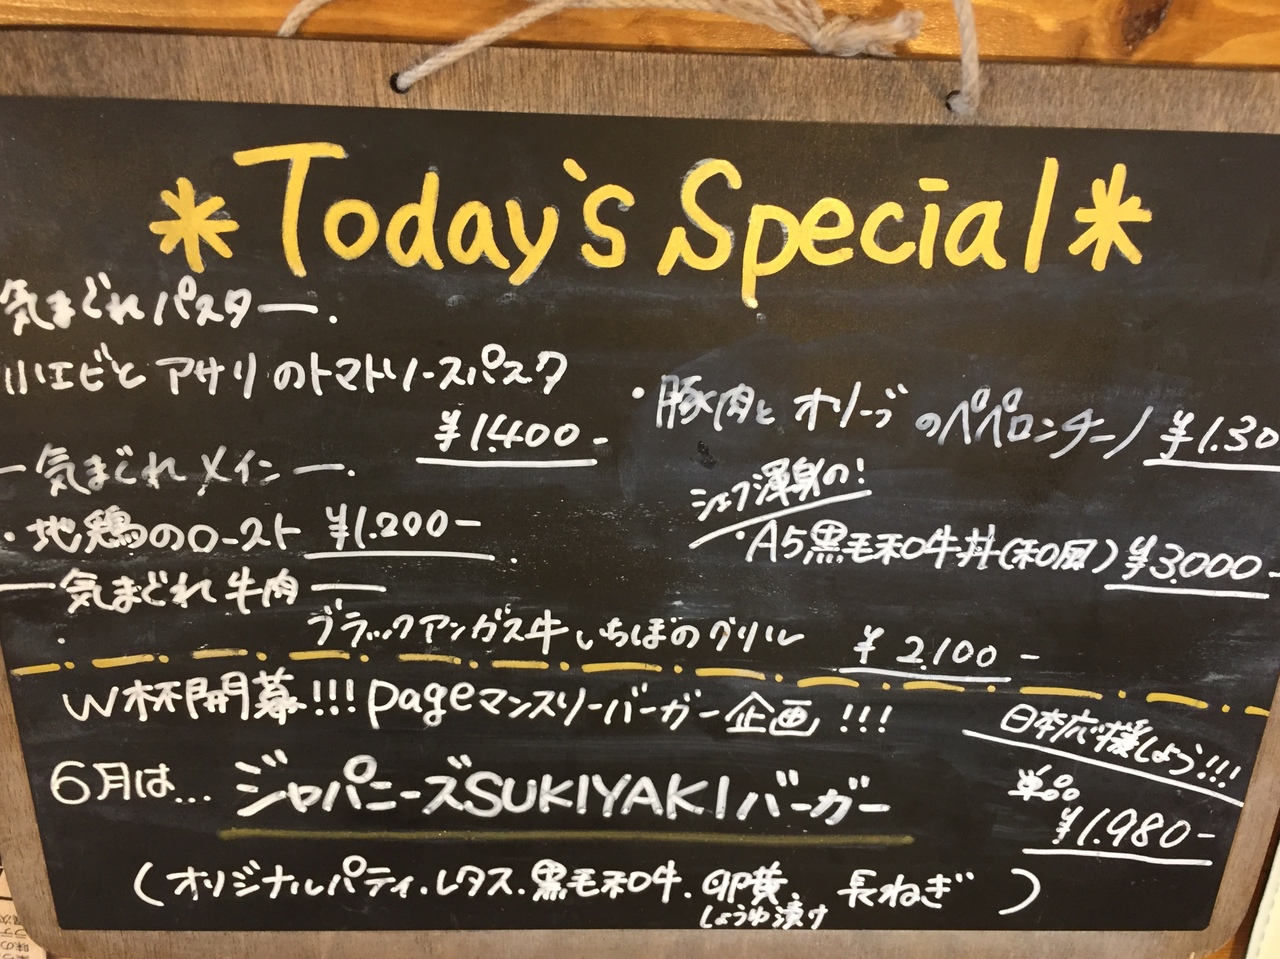 *Today's Special*
気まぐれパスター.
小エビとアサリのトマトソースパスタ
¥1.400-
・豚肉とオリーブのペペロンチーノ ¥1.30
ー気まぐれメインー.
シェフ渾身の!
・地鶏のロースト ¥1.200-
・A5黒毛和牛丼(和風) ¥3.000-
ー気まぐれ牛肉ー
・ブラックアンガス牛いちぼのグリル ¥2.100-
W杯開幕!!! pageマンスリーバーガー企画!!!
日本応援しよう!!!
6月は... ジャパニーズSUKIYAKIバーガー
単品
¥1.980-
(オリジナルパティ.レタス.黒毛和牛.卵黄.長ねぎ)
しょうゆ漬け